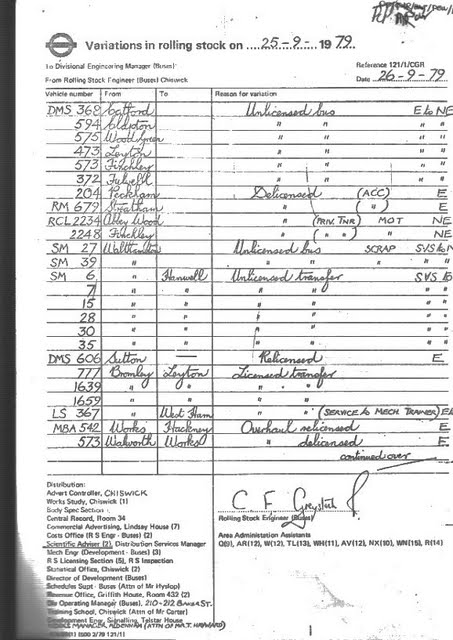 Variations in rolling stock on 25-9- 19 79.
To Divisional Engineering Manager (Buses)
Reference 121/1/CGR
From Rolling Stock Engineer (Buses) Chiswick
Date 26-9-79
Vehicle number From To Reason for variation
DMS 368 Catford Unlicensed bus E to NE
594 Clapton " " " "
575 Wood Green " " " "
473 Leyton " " " "
573 Finchley " " " "
372 Fulwell " " " "
204 Peckham Delicensed (ACC) E
RM 679 Streatham " ( " ) E
RCL 2234 Abbey Wood " (PRIV. TNR) MOT NE
2248 Finchley " ( " " ) " NE
SM 27 Walthamstow Unlicensed bus SCRAP SVS to NE
SM 39 " " " " " "
SM 6 " Hanwell Unlicensed transfer SVS to E
7 " " " " " "
15 " " " " " "
28 " " " " " "
30 " " " " " "
35 " " " " " "
DMS 606 Sutton — Relicensed E
777 Bromley Leyton Licensed transfer
1639 " " " "
1659 " " " "
LS 367 " West Ham " " (SERVICE to MECH TRAINER)
MBA 542 Works Hackney Overhaul relicensed E
573 Walworth Works " delicensed E
continued over
Distribution:
Advert Controller, CHISWICK
Works Study, Chiswick (1)
Body Spec Section
Central Record, Room 34
Commercial Advertising, Lindsay House (7)
Costs Office (R S Engr - Buses) (2)
Scientific Adviser (2), Distribution Services Manager
Mech Engr (Development - Buses) (3)
R S Licensing Section (5), R S Inspection
Statistical Office, Chiswick (2)
Director of Development (Buses)
Schedules Supt - Buses (Attn of Mr Hyslop)
Revenue Office, Griffith House, Room 432 (2)
Operating Manager (Buses), 210-212 BAKER ST.
Training School, Chiswick (Attn of Mr Carter)
Development Engr, Signalling, Telstar House
WORKS MANAGER, ALDENHAM (ATTN OF MR T. HAYWARD)
Rolling Stock Engineer (Buses)
Area Administration Assistants
Q(9), AR(12), W(12), TL(13), WH(11), AV(12), NX(10), WN(15), R(14)